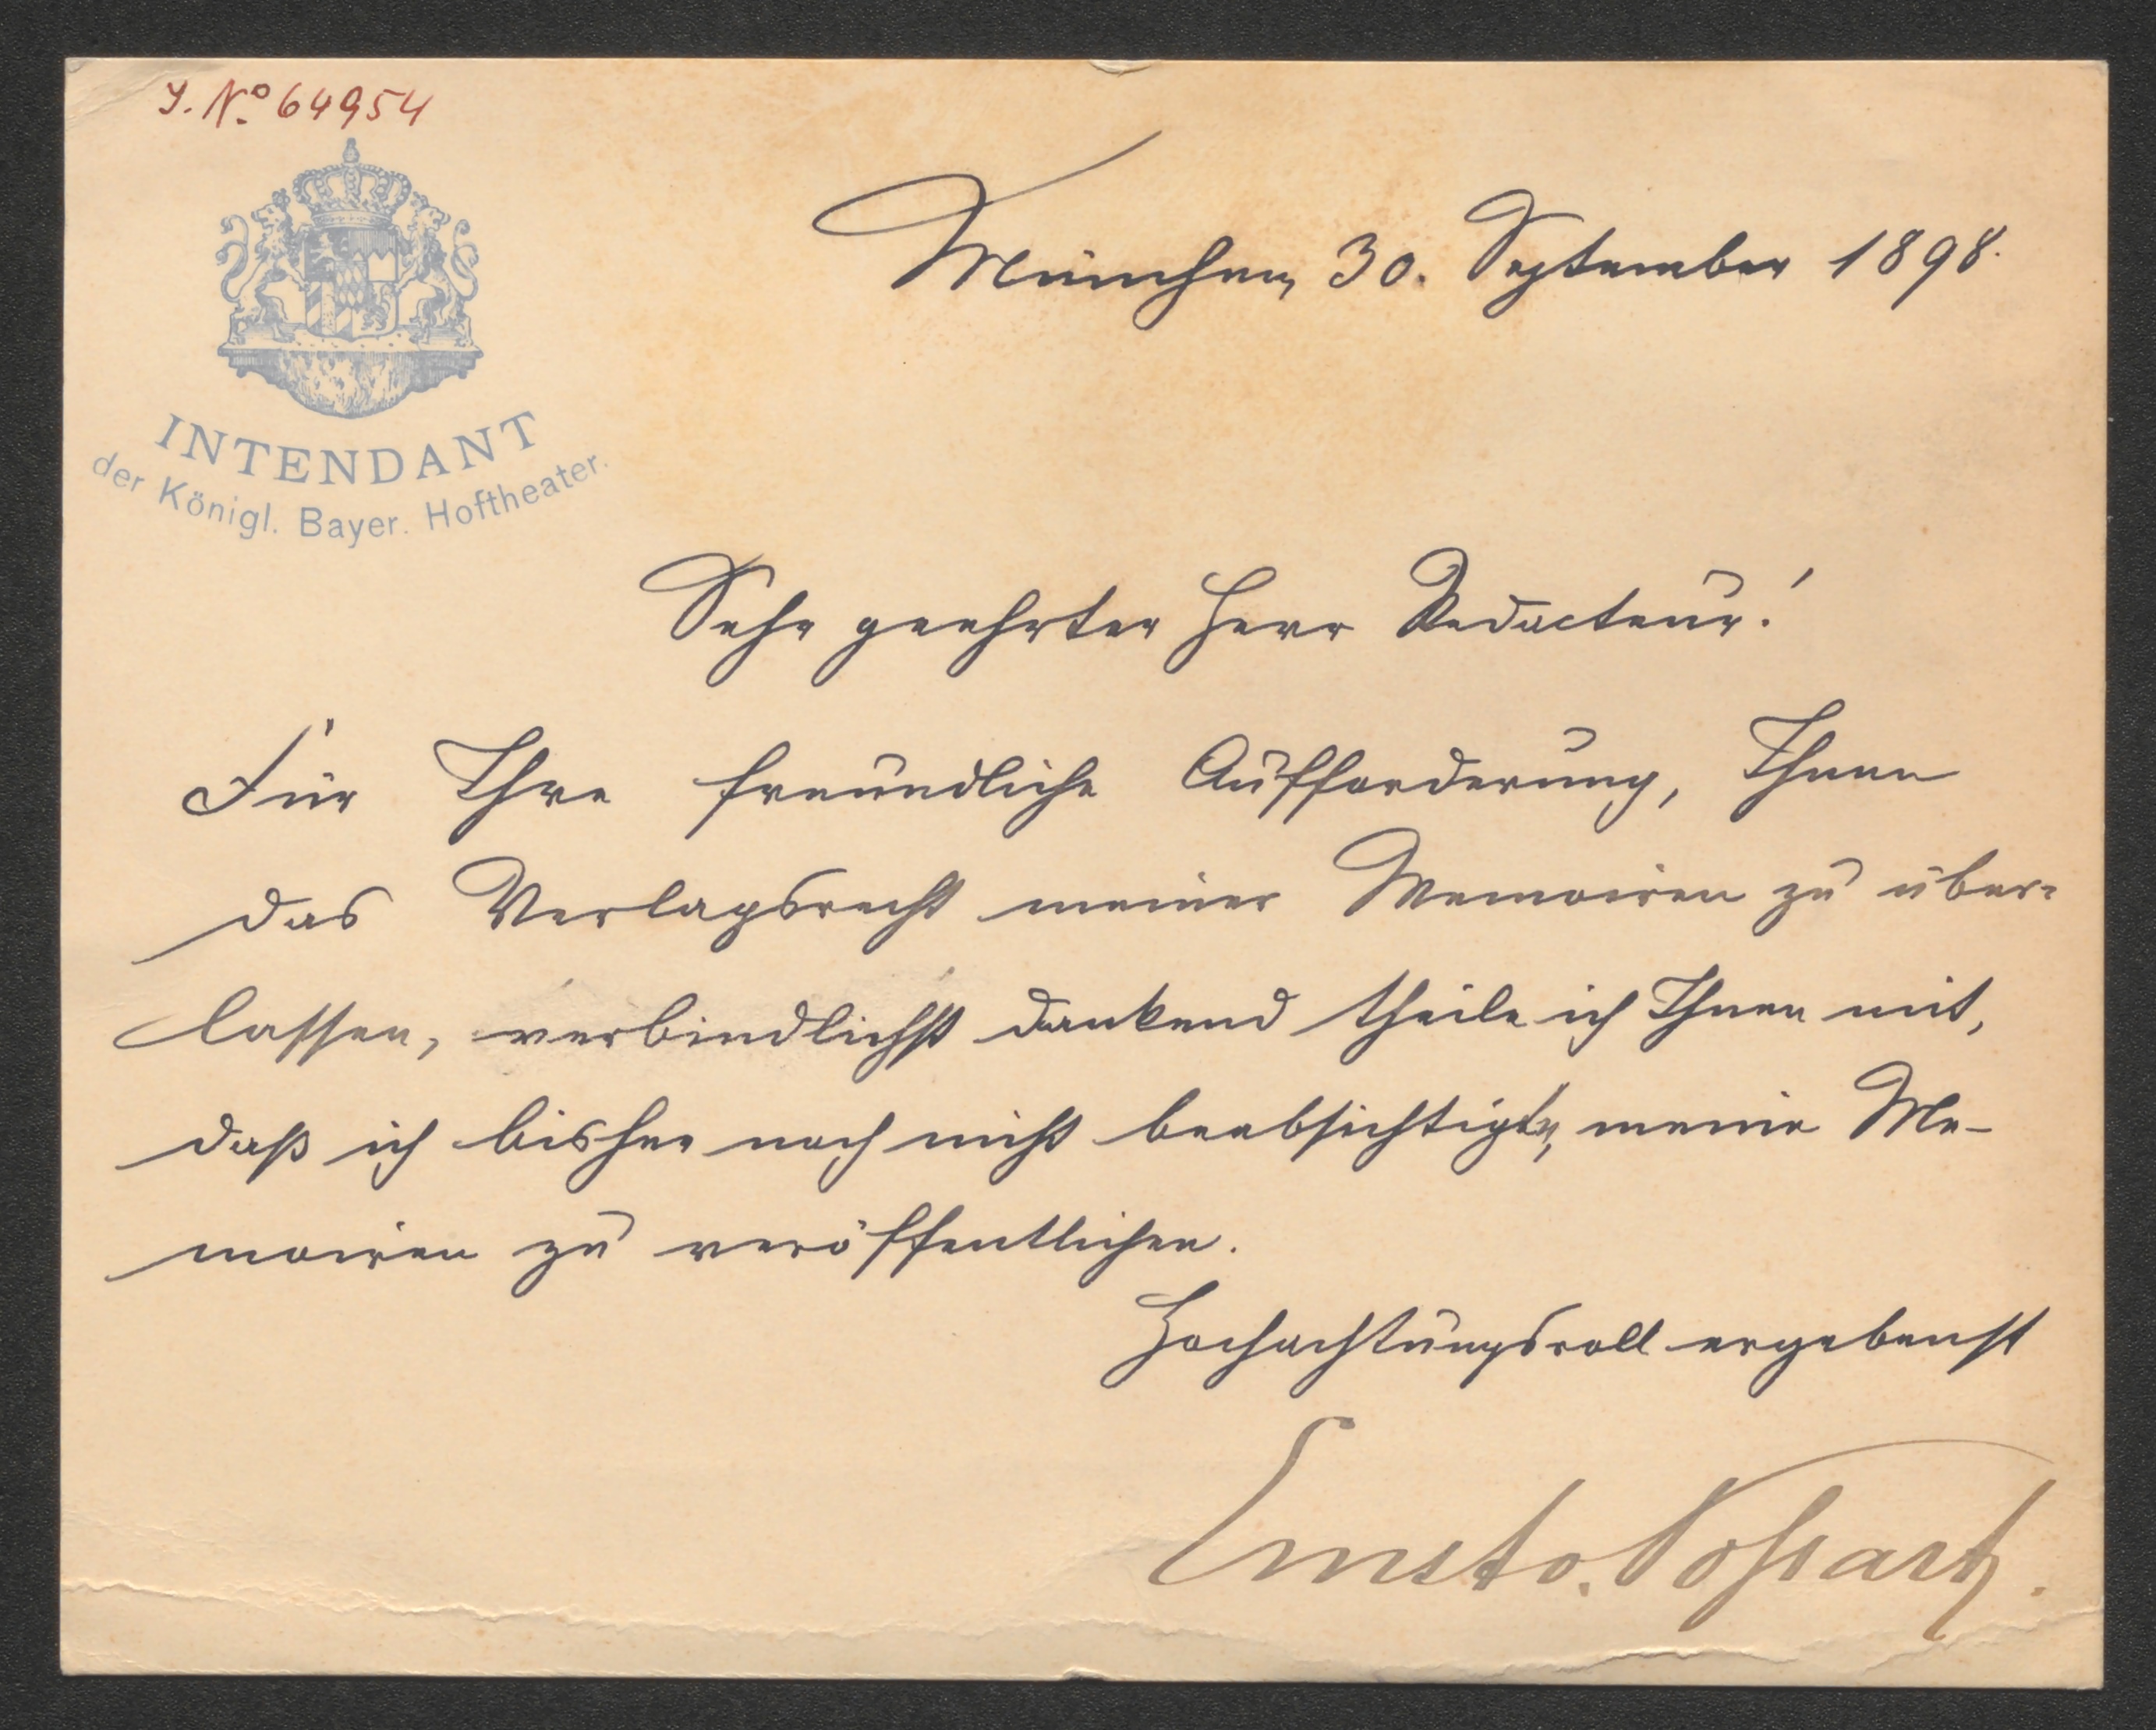 J. No. 64954
München, 30. September 1898.
INTENDANT
der Königl. Bayer. Hoftheater.
Sehr geehrter Herr Redacteur!
Für Ihre freundliche Aufforderung, Ihnen
das Verlagsrecht meiner Memoiren zu über-
lassen, verbindlichst dankend theile ich Ihnen mit,
daß ich bisher noch nicht beabsichtigte, meine Me-
moiren zu veröffentlichen.
Hochachtungsvoll ergebenst
Ernst v. Possart.